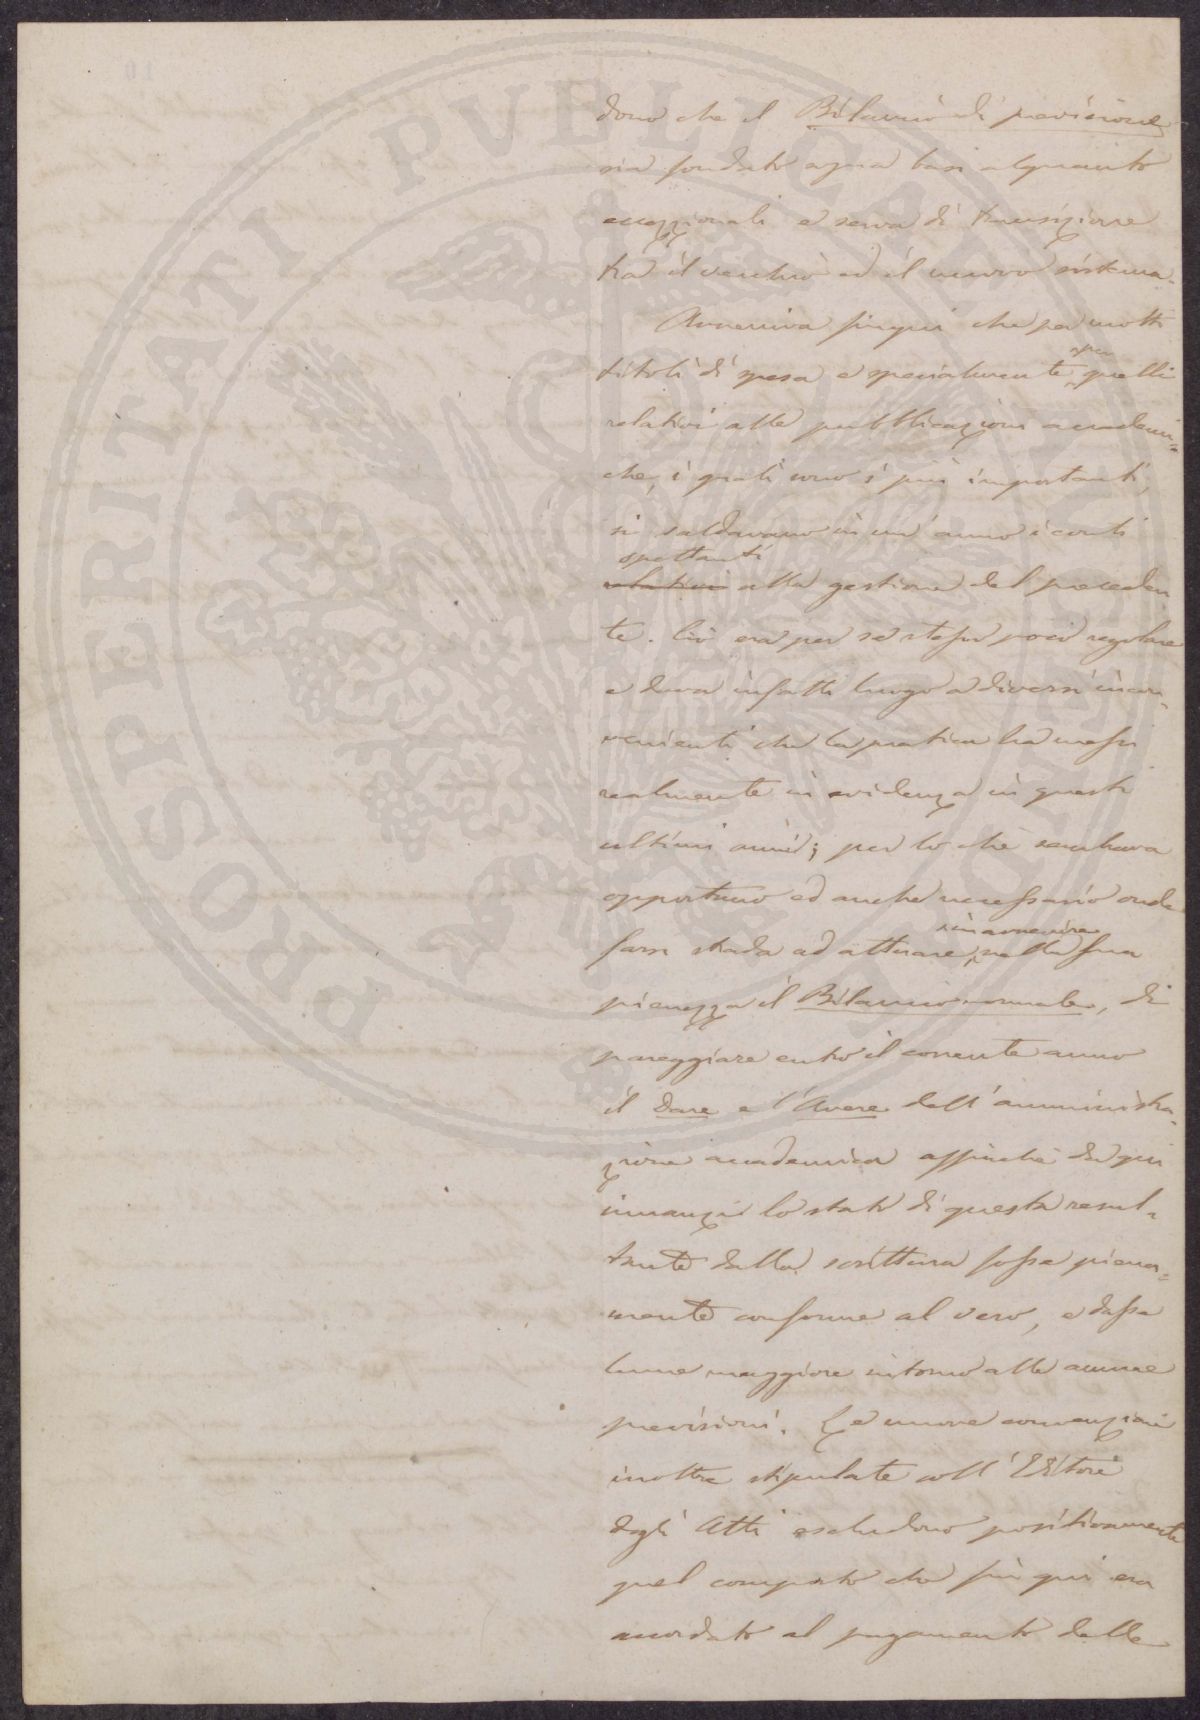 PROSPERITATI PVBLICAE AVGENDAE
dono che il Bilancio di previsione
sia fondato sopra basi alquanto
eccezzionali e serva di transizione
tra il vecchio ed il nuovo sistema.
Avveniva finqui che per molti
titoli di spesa e specialmente per quelli
relativi alle pubblicazioni accademi-
che, i quali sono i più importanti,
si saldavano in un' anno i conti
spettanti
relativi alla gestione del preceden
te. Ciò era per se stesso poco regolare
e dava infatti luogo a diversi incon-
venienti che la pratica ha messi
realmente in evidenza in questi
ultimi anni; per lo che sembrava
opportuno ed anche necessario onde
farsi strada ad attuare in avvenire nella sua
pienezza il Bilancio normale, di
pareggiare entro il corrente anno
il Dare e l'Avere dell'amministra-
zione accademica affinchè da qui
innanzi lo stato di questa resul-
tante dalla scrittura fosse piena-
mente conforme al vero, e dasse
lume maggiore intorno alle annue
previsioni. Le nuove convenzioni
inoltre stipulate coll'Editore
degli Atti escludono positivamente
quel comporto che fin qui era
accordato al pagamento delle